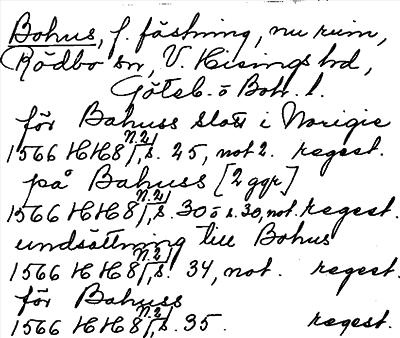 Bohus, f. fästning, nu ruin,
Rödbo sn, V. Hisings hd,
Göteb. o Boh. l.
för Bahuss slott i Norigie
1566 HH8 N.2/1, s. 25, not 2. regest.
på Bahuss [2 ggr.]
1566 HH8 N.2/1, s. 30 o s. 30, not. regest.
undsättning till Bohus
1566 HH8 N.2/1, s. 34, not. regest.
för Bahuss
1566 HH8 N.2/1, s. 35. regest.